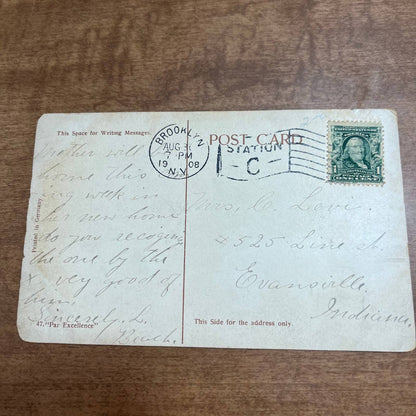 This Space for Writing Messages.
POST CARD
BROOKLYN
AUG 31
7 PM
1908
N.Y.
STATION
C
Brother will
home this
week in
her new home
do you recognize
the one by the
x very good of
him
Sincerely, L.
Mrs. C. Lovis.
4525 Line st.
Evansville,
Indiana.
Printed in Germany
47, "Par Excellence"
This Side for the address only.
1